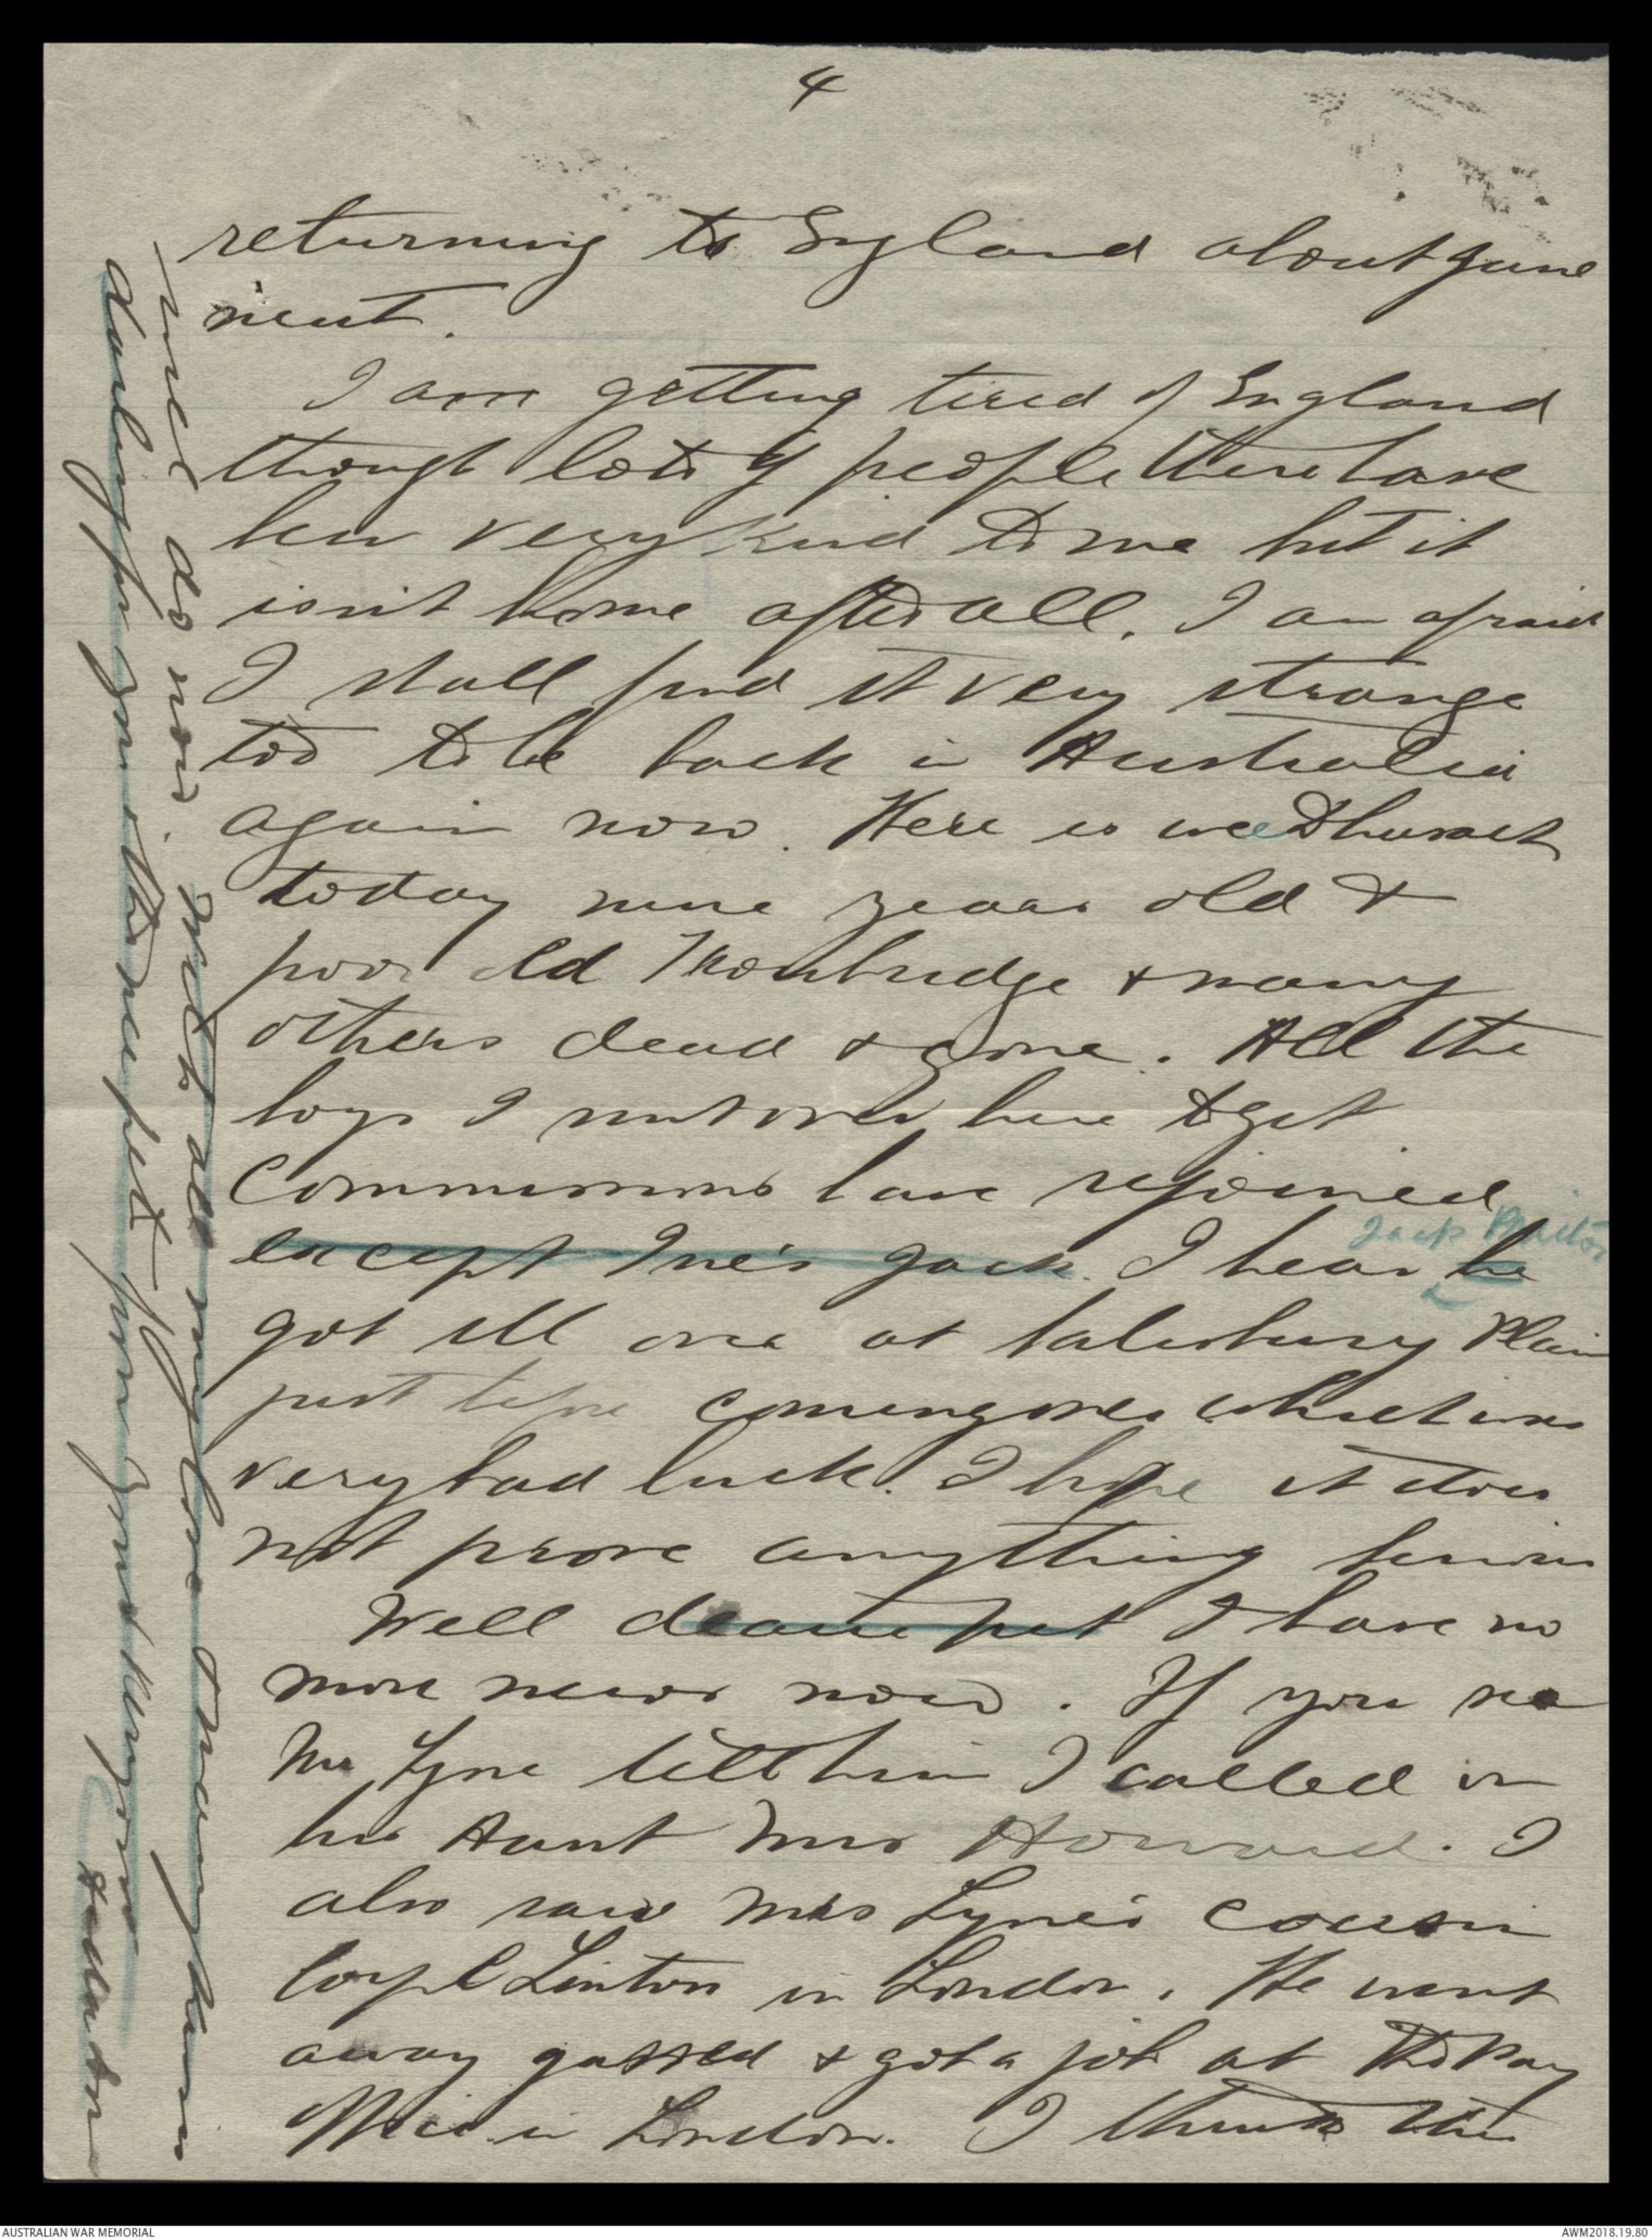 4
returning to England about June
next.
I am getting tired of England
though lots of people there have
been very kind to me but it
isn't home after all. I am afraid
I shall find it very strange
too to be back in Australia
again now. Here is wee
today nine years old &
poor old Trowbridge & many
others dead & gone. All the
boys I sent over here to get
Commissions have rejoined
except Ine's Jack. I hear he
Jack
got ill over at Salisbury Plain
just before coming over which was
very bad luck. I hope it does
not prove anything serious
Well dearie pet I have no
more news now. If you see
Mr Lyne tell him I called on
his Aunt Mrs Howard. I
also saw Mrs Lyne's cousin
Corpl Linton in London. He went
away gassed & got a job at the Pay
Office in London. I think this
will do now. With all my love & many kisses
darling for you & the wee pet from your